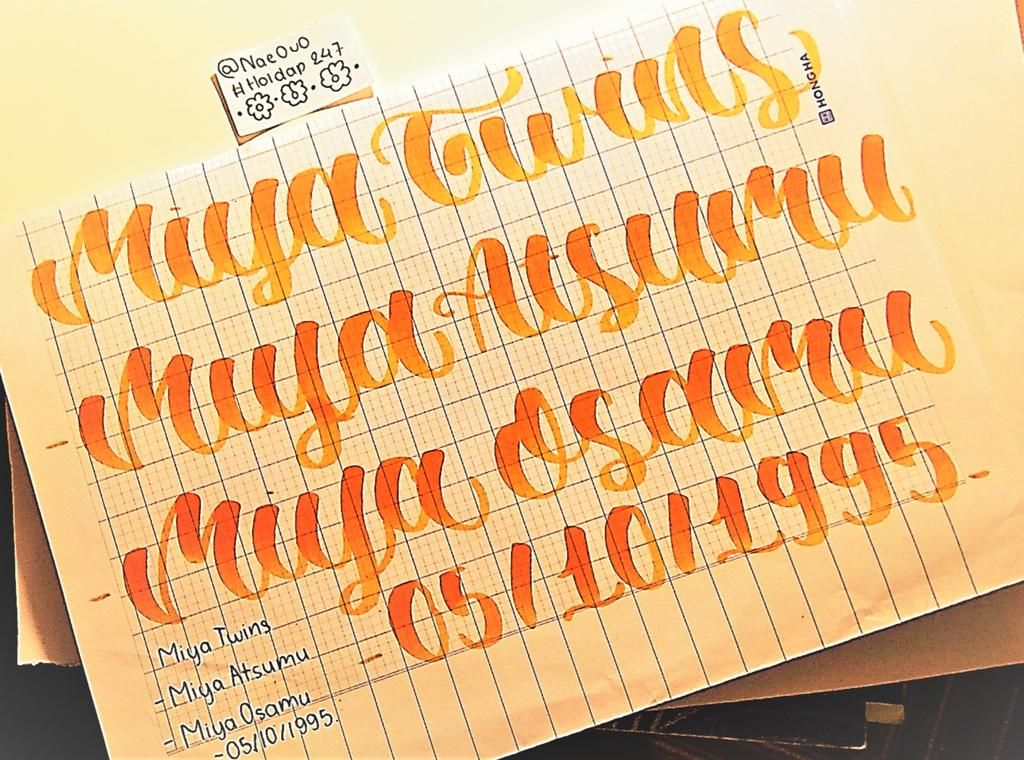 @NaeOvO
#Hoidap 247
Miya Twins
HONG HA
Miya Atsumu
Miya Osamu
05/10/1995
Miya Twins
- Miya Atsumu
- Miya Osamu
- 05/10/1995.